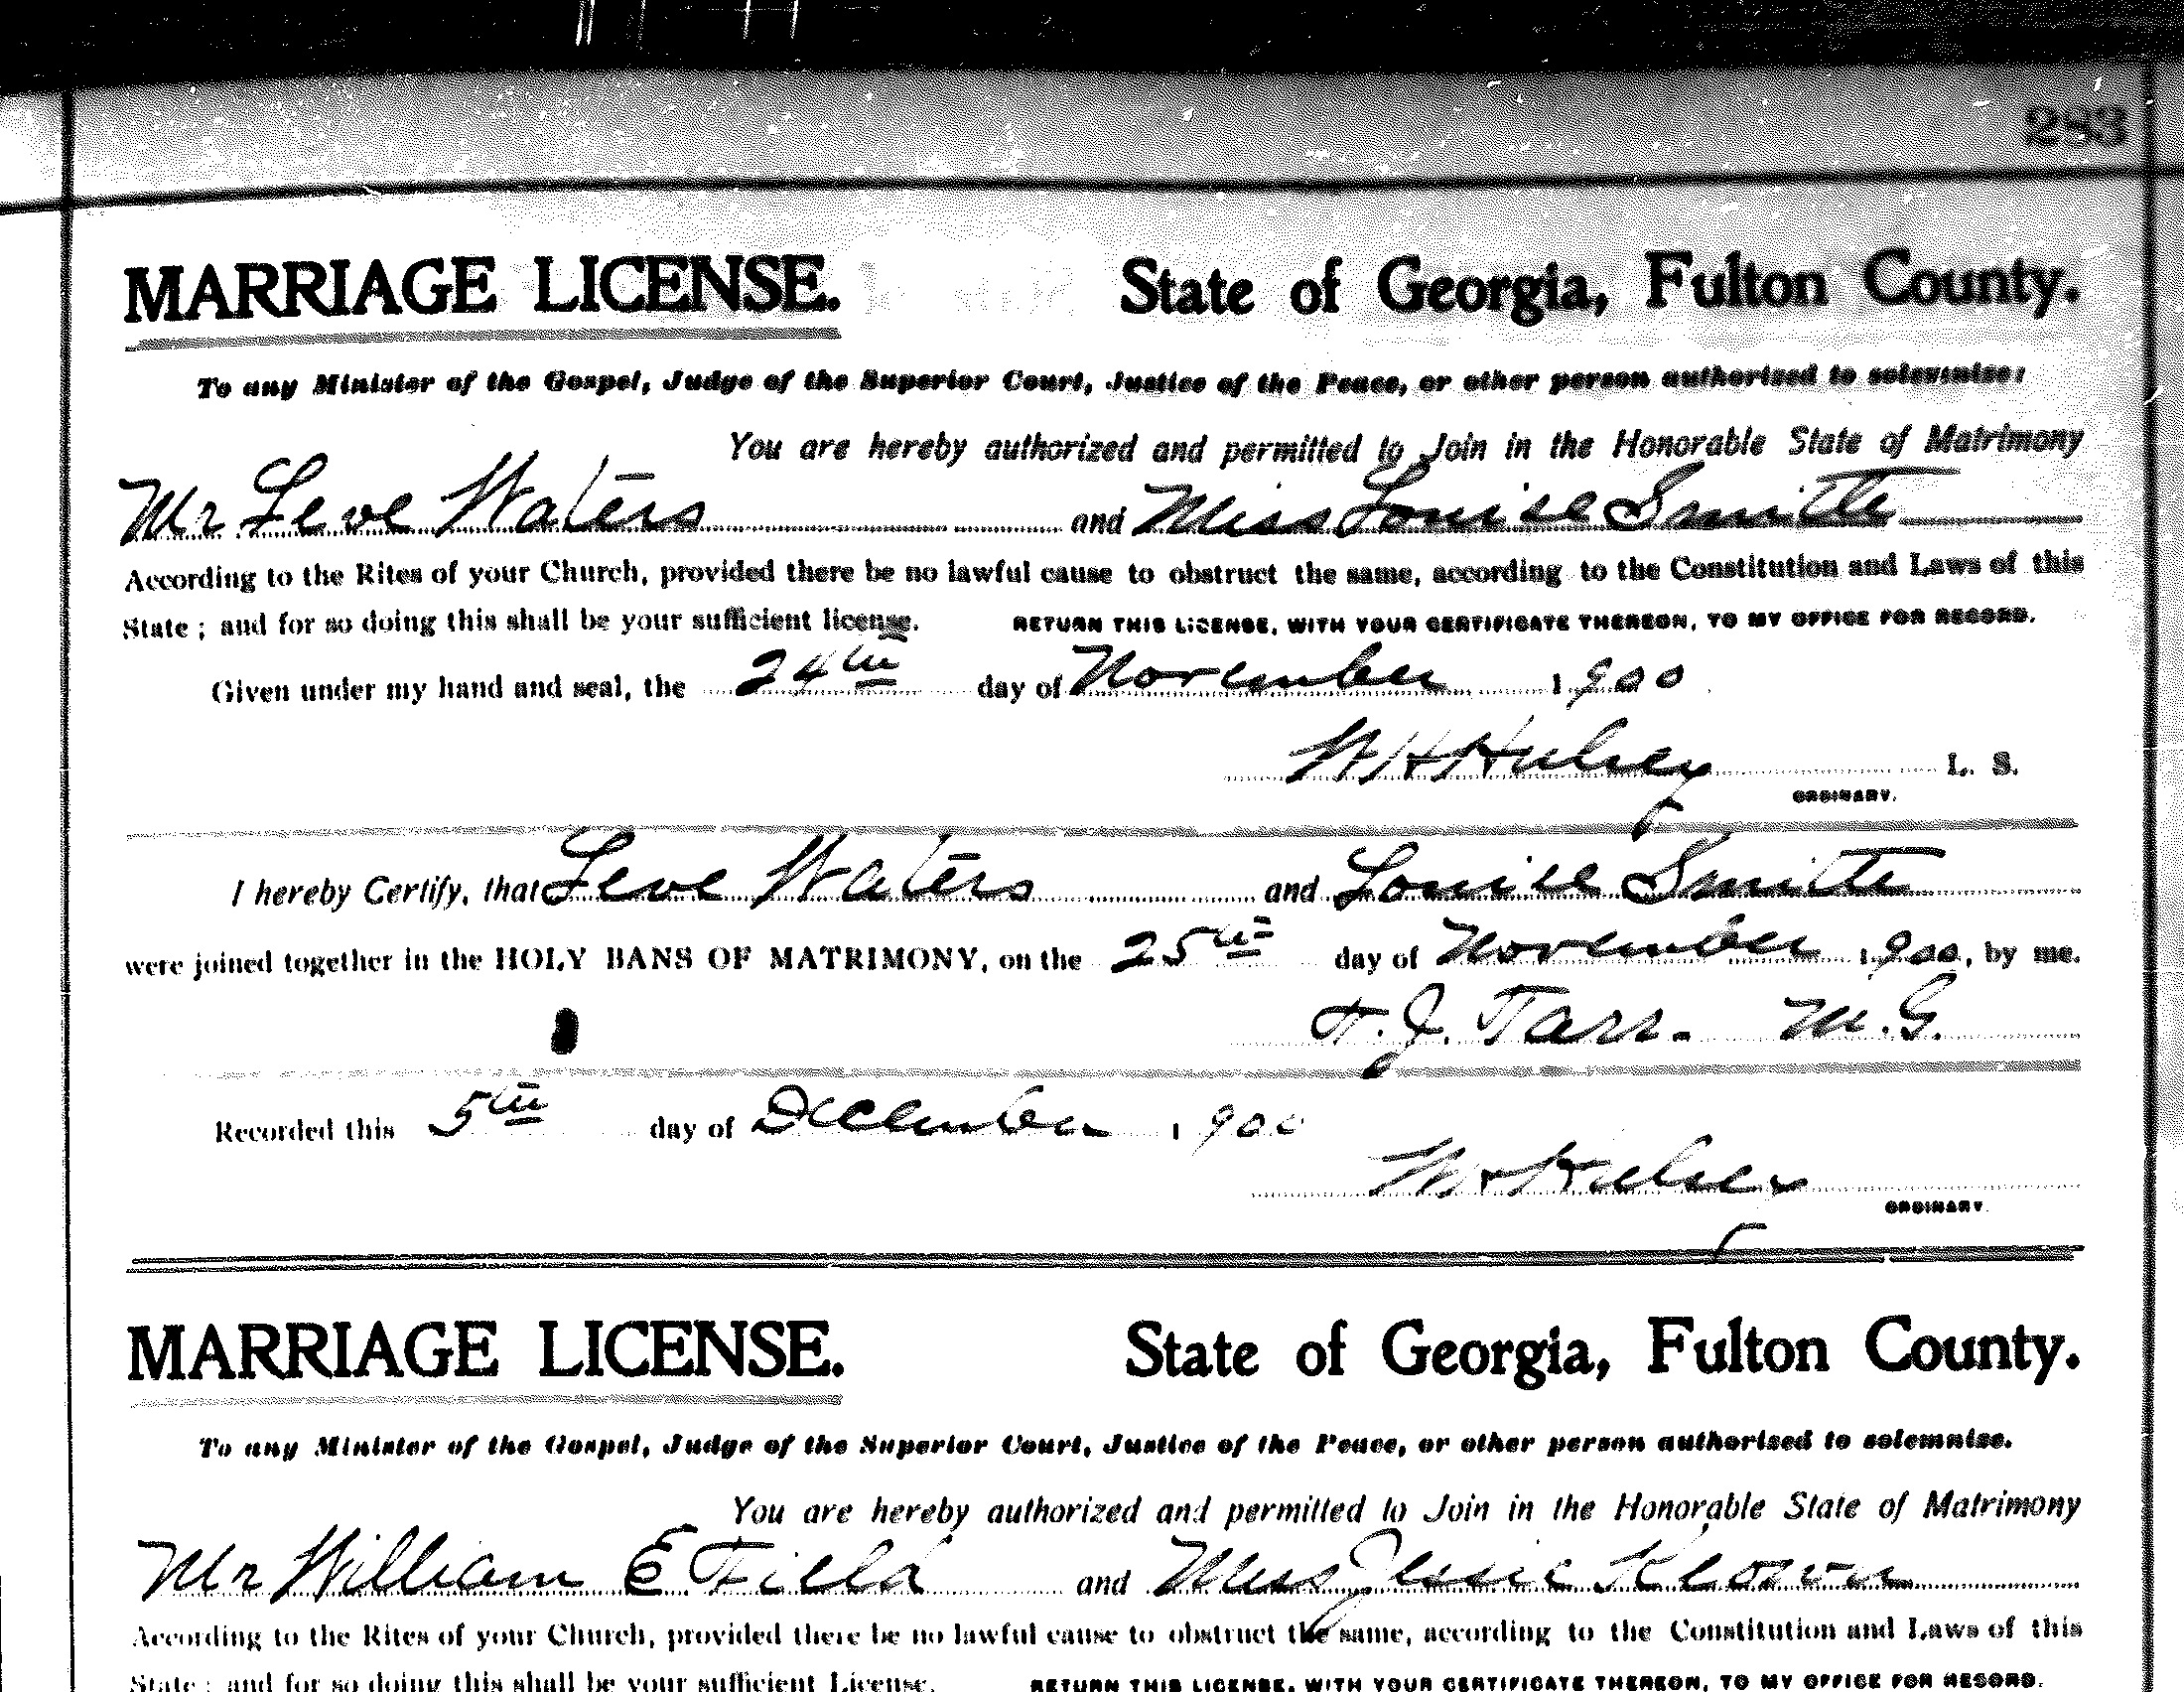 283
MARRIAGE LICENSE. State of Georgia, Fulton County.
To any Minister of the Gospel, Judge of the Superior Court, Justice of the Peace, or other person authorized to solemnize:
You are hereby authorized and permitted to Join in the Honorable State of Matrimony
Mr Leve Waters and Miss Louise Smith
According to the Rites of your Church, provided there be no lawful cause to obstruct the same, according to the Constitution and Laws of this
State; and for so doing this shall be your sufficient license. RETURN THIS LICENSE, WITH YOUR CERTIFICATE THEREON, TO MY OFFICE FOR RECORD.
Given under my hand and seal, the 24th day of November 1900
W H Hulsey L. S.
ORDINARY.
I hereby Certify, that Leve Waters and Louise Smith
were joined together in the HOLY BANS OF MATRIMONY, on the 25th day of November 1900, by me.
J. Tarr. M.G.
Recorded this 5th day of December 1900
W H Hulsey
ORDINARY
MARRIAGE LICENSE. State of Georgia, Fulton County.
To any Minister of the Gospel, Judge of the Superior Court, Justice of the Peace, or other person authorised to solemnize.
You are hereby authorized and permitted to Join in the Honorable State of Matrimony
Mr William E Field and Miss Jessie
According to the Rites of your Church, provided there be no lawful cause to obstruct the same, according to the Constitution and Laws of this
State; and for so doing this shall be your sufficient License. RETURN THIS LICENSE, WITH YOUR CERTIFICATE THEREON, TO MY OFFICE FOR RECORD.